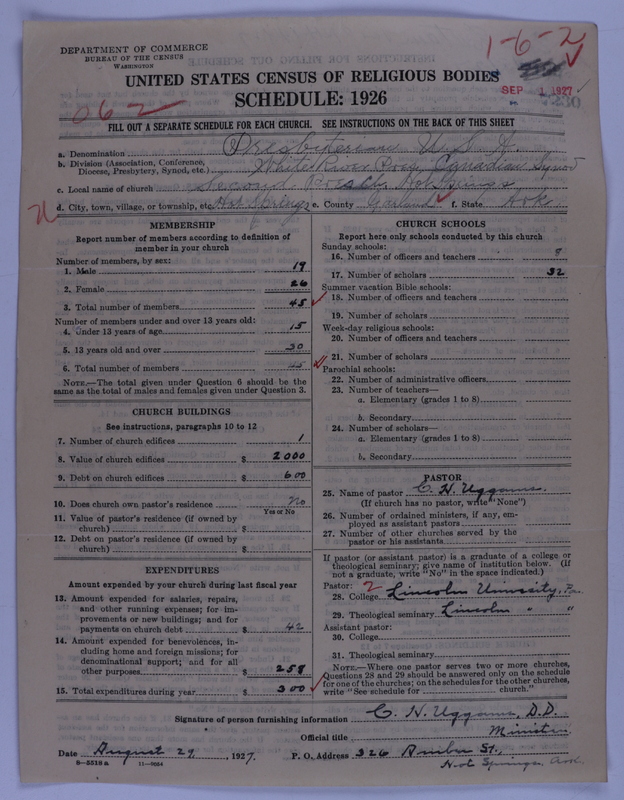 DEPARTMENT OF COMMERCE
BUREAU OF THE CENSUS
WASHINGTON
1-6-2
UNITED STATES CENSUS OF RELIGIOUS BODIES
SEP 1 1927
062
SCHEDULE: 1926
FILL OUT A SEPARATE SCHEDULE FOR EACH CHURCH. SEE INSTRUCTIONS ON THE BACK OF THIS SHEET
a. Denomination Presbyterian U. S. A.
b. Division (Association, Conference, Diocese, Presbytery, Synod, etc.) White River Canadian Synod
c. Local name of church Second Presby Hot Springs
d. City, town, village, or township, etc. Hot Springs e. County Garland f. State Ark
MEMBERSHIP
Report number of members according to definition of
member in your church
Number of members, by sex:
1. Male 19
2. Female 26
3. Total number of members 45
Number of members under and over 13 years old:
4. Under 13 years of age 15
5. 13 years old and over 30
6. Total number of members 45
NOTE.—The total given under Question 6 should be the
same as the total of males and females given under Question 3.
CHURCH BUILDINGS
See instructions, paragraphs 10 to 12
7. Number of church edifices 1
8. Value of church edifices $ 2000
9. Debt on church edifices $ 600
10. Does church own pastor's residence No
Yes or No
11. Value of pastor's residence (if owned by
church) $
12. Debt on pastor's residence (if owned by
church) $
EXPENDITURES
Amount expended by your church during last fiscal year
13. Amount expended for salaries, repairs,
and other running expenses; for im-
provements or new buildings; and for
payments on church debt $ 42
14. Amount expended for benevolences, in-
cluding home and foreign missions; for
denominational support; and for all
other purposes $ 258
15. Total expenditures during year $ 300
CHURCH SCHOOLS
Report here only schools conducted by this church
Sunday schools:
16. Number of officers and teachers 8
17. Number of scholars 32
Summer vacation Bible schools:
18. Number of officers and teachers
19. Number of scholars
Week-day religious schools:
20. Number of officers and teachers
21. Number of scholars
Parochial schools:
22. Number of administrative officers
23. Number of teachers—
a. Elementary (grades 1 to 8)
b. Secondary
24. Number of scholars—
a. Elementary (grades 1 to 8)
b. Secondary
PASTOR
25. Name of pastor C. H. Uggams
(If church has no pastor, write "None")
26. Number of ordained ministers, if any, em-
ployed as assistant pastors
27. Number of other churches served by the
pastor or his assistants
If pastor (or assistant pastor) is a graduate of a college or
theological seminary; give name of institution below. (If
not a graduate, write "No" in the space indicated.)
Pastor: 2
28. College Lincoln University, Pa.
29. Theological seminary Lincoln " "
Assistant pastor:
30. College
31. Theological seminary
NOTE.—Where one pastor serves two or more churches,
Questions 28 and 29 should be answered only on the schedule
for one of the churches; on the schedules for the other churches,
write "See schedule for church."
Signature of person furnishing information C. H. Uggams, D.D.
Official title Minister
Date August 29, 1927. P. O. Address 326 Amber St.,
8-5519 a 11-9664 Hot Springs Ark.